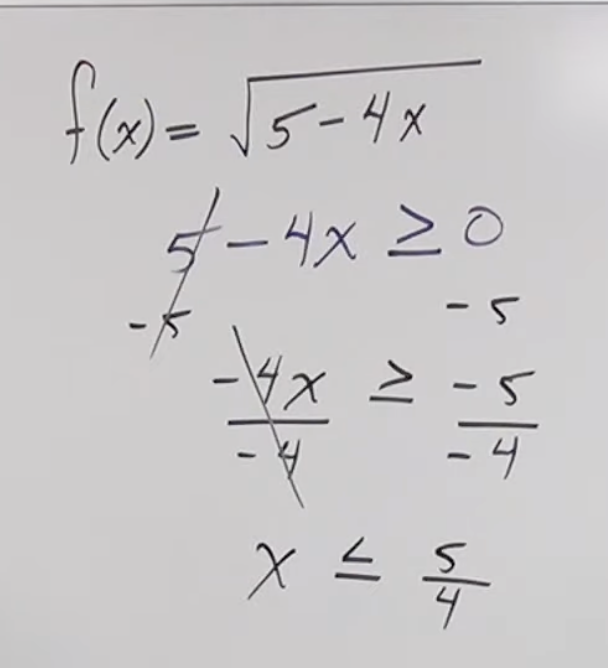 f(x) = √5 - 4x
5 - 4x ≥ 0
-5 -5
-4x ≥ -5
-4 -4
x ≤ 5/4